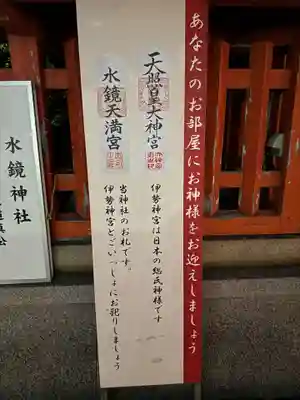 あなたのお部屋にお神様をお迎えしましょう
天照皇大神宮
伊勢神宮は日本の総氏神様です
水鏡天満宮
当神社のお札です。
伊勢神宮とごいっしょにお祀りしましょう
水鏡神社